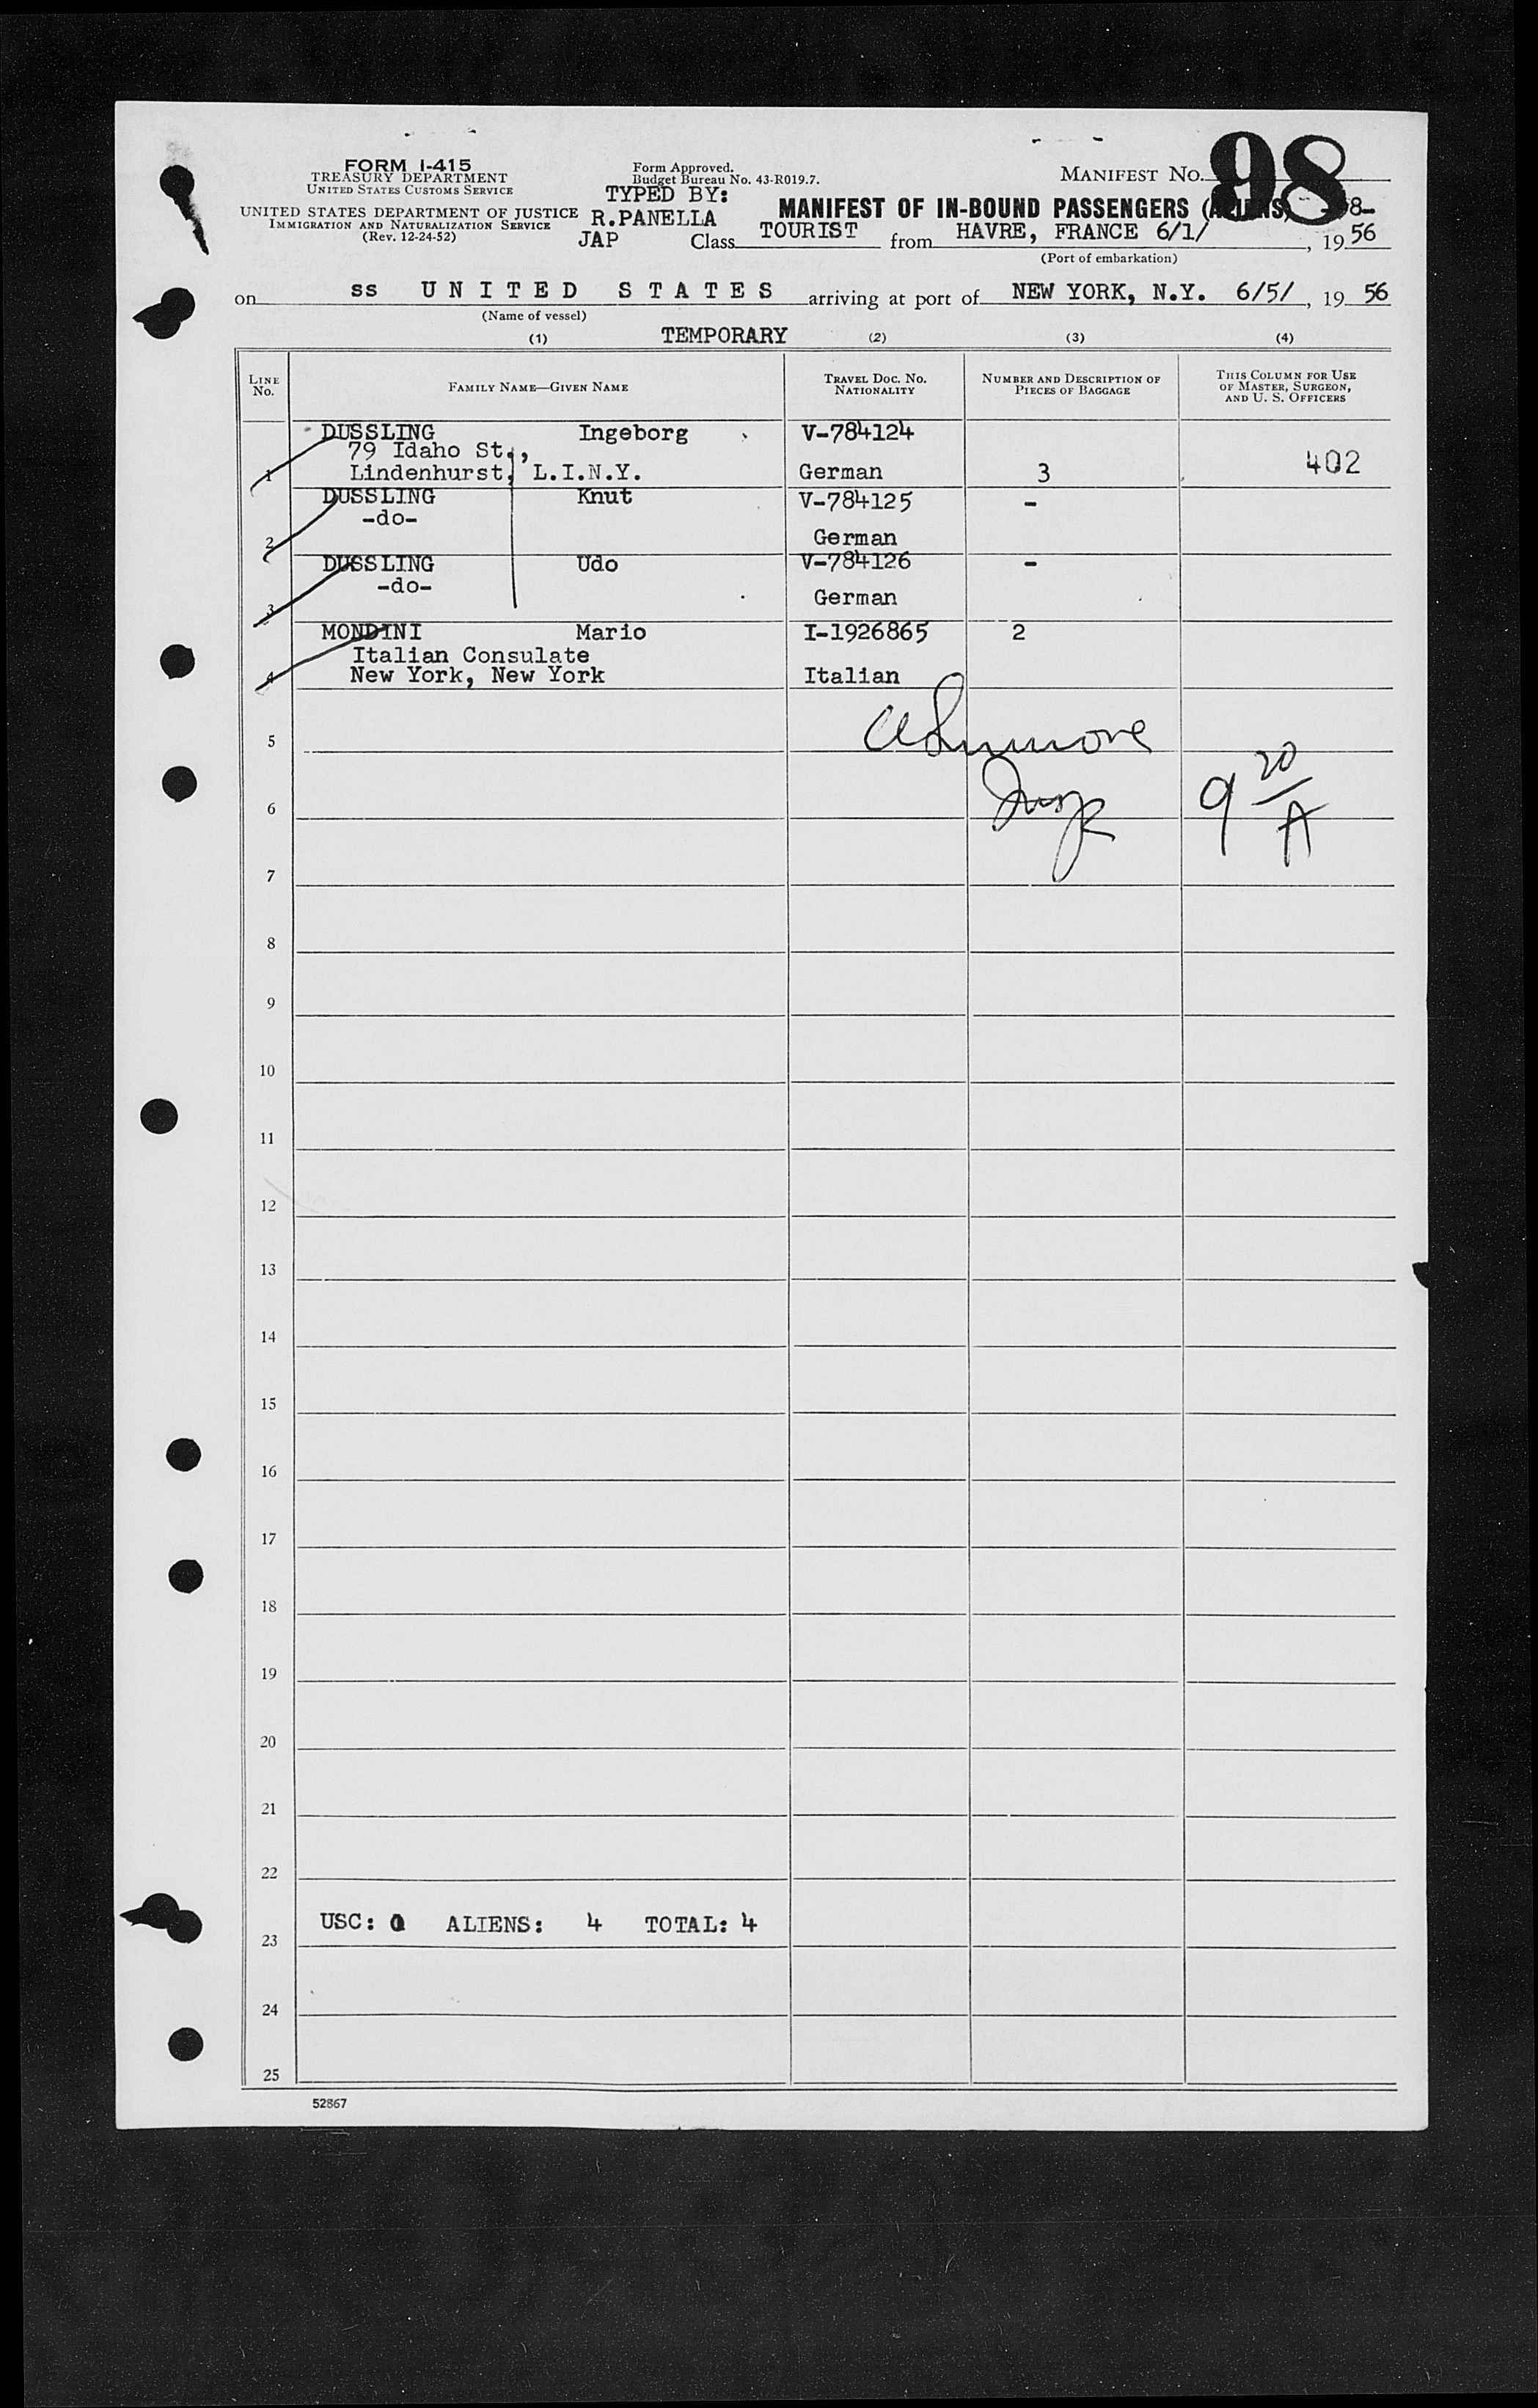 FORM I-415
TREASURY DEPARTMENT
UNITED STATES CUSTOMS SERVICE
UNITED STATES DEPARTMENT OF JUSTICE
IMMIGRATION AND NATURALIZATION SERVICE
(Rev. 12-24-52)
Form Approved.
Budget Bureau No. 43-R019.7.
TYPED BY:
R.PANELLA
JAP
MANIFEST NO. 98
MANIFEST OF IN-BOUND PASSENGERS (ALIENS)
Class TOURIST from HAVRE, FRANCE 6/1/, 19 56
(Port of embarkation)
on ss UNITED STATES arriving at port of NEW YORK, N.Y. 6/5/, 19 56
(Name of vessel)
(1) TEMPORARY (2) (3) (4)
LINE NO. FAMILY NAME—GIVEN NAME TRAVEL DOC. NO. NATIONALITY NUMBER AND DESCRIPTION OF PIECES OF BAGGAGE THIS COLUMN FOR USE OF MASTER, SURGEON, AND U. S. OFFICERS
DUSSLING Ingeborg V-784124
79 Idaho St.,
1 Lindenhurst, L.I.N.Y. German 3 402
DUSSLING Knut V-784125 -
-do-
2 German
DUSSLING Udo V-784126 -
-do-
3 German
MONDINI Mario I-1926865 2
Italian Consulate
4 New York, New York Italian
5
6 9 20/A
7
8
9
10
11
12
13
14
15
16
17
18
19
20
21
22
USC: 0 ALIENS: 4 TOTAL: 4
23
24
25
52867